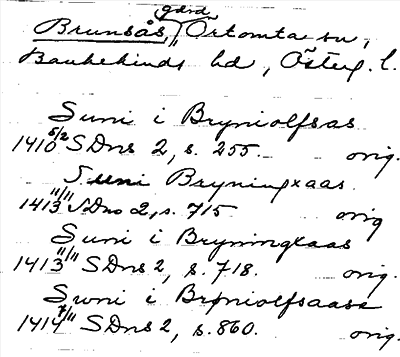 Brunsås, gård, Örtomta sn,
Bankekinds hd, Österg. l.
Suni i Bryniolfsas
1410 5/2 SDns 2, s. 255. orig.
Suni Bryningxaas.
1413 11/11 SDns 2, s. 715. orig
Suni i Bryningxaas
1413 11/11 SDns 2, s. 718. orig.
Suni i Bryniolfsaass
1414 7/11 SDns 2, s. 860. orig.